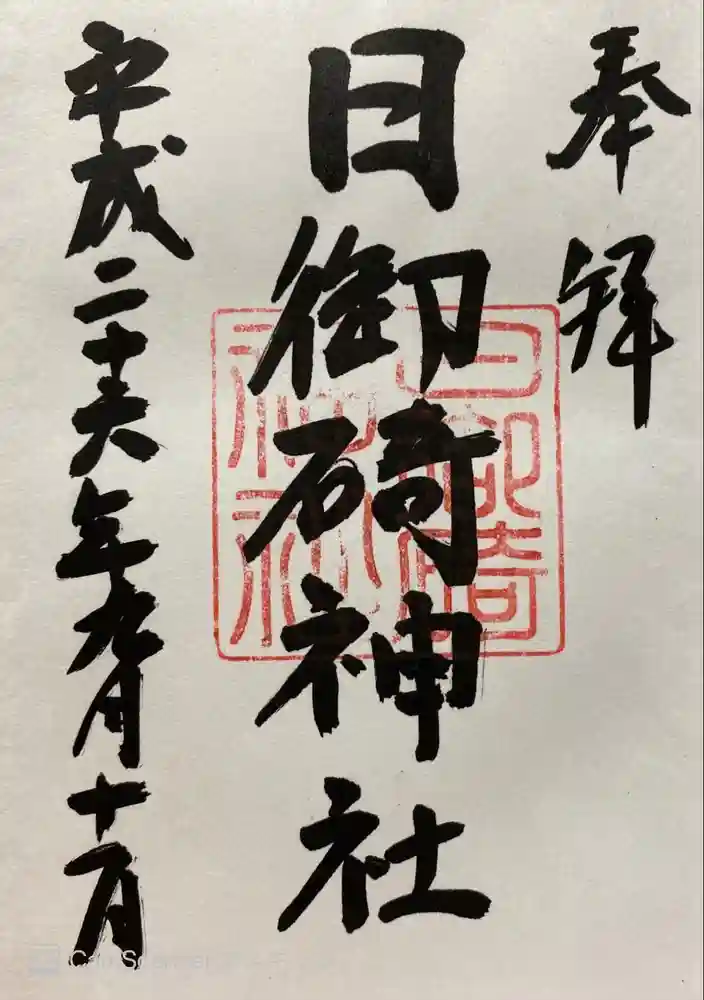 奉拝
日御碕神社
平成二十六年九月十
日御碕
神社
CamScanner